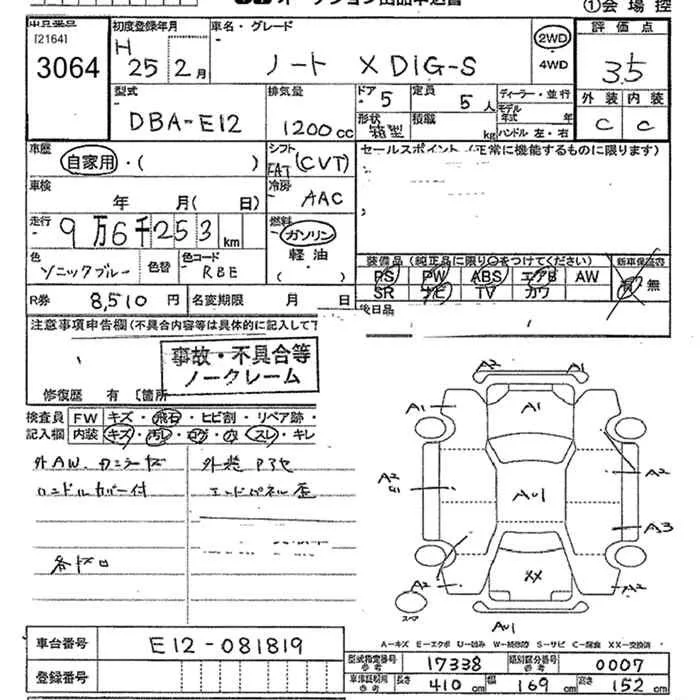 ①会場控
[2164]
3064
初度登録年月
H 25年 2月
車名・グレード
ノート X DIG-S
2WD
・
4WD
評価点
3.5
外装 内装
C C
型式
DBA-E12
排気量
1200cc
ドア 5
定員 5人
形状 箱型
積載 kg
ディーラー・並行
モデル年式 年
ハンドル 左・右
車歴
自家用・( )
シフト
FAT (CVT)
セールスポイント (正常に機能するものに限ります)
車検
年 月( 日)
冷房
AAC
走行
9万6千253km
燃料
ガソリン
軽油
( )
色
ソニックブルー
色替
色コード
RBE
装備品 (純正品に限り○をつけてください)
PS PW ABS エアB AW
SR ナビ TV カワ
新車保証書
有 無
R券 8,510円
名変期限 月 日
後日品
注意事項申告欄(不具合内容等は具体的に記入して下
事故・不具合等
ノークレーム
修復歴 有 〔箇所
検査員 FW キズ・飛石・ヒビ割・リペア跡・
記入欄 内装 キズ・汚レ・コゲ・穴・スレ・キレ
ハンドルカバー付
エンドパネル歪
A2
A1
A1
A1
A2
A2
AU1
A3
A2
XX
A2
スペア
AU1
A-キズ E-エクボ U-凹み W-補修跡 S-サビ C-腐食 XX-交換済
車台番号 E12-081819
型式指定番号 参考 17338
類別区分番号 参考 0007
登録番号
車検証明用 参考 長さ 410cm 幅 169cm 高さ 152cm